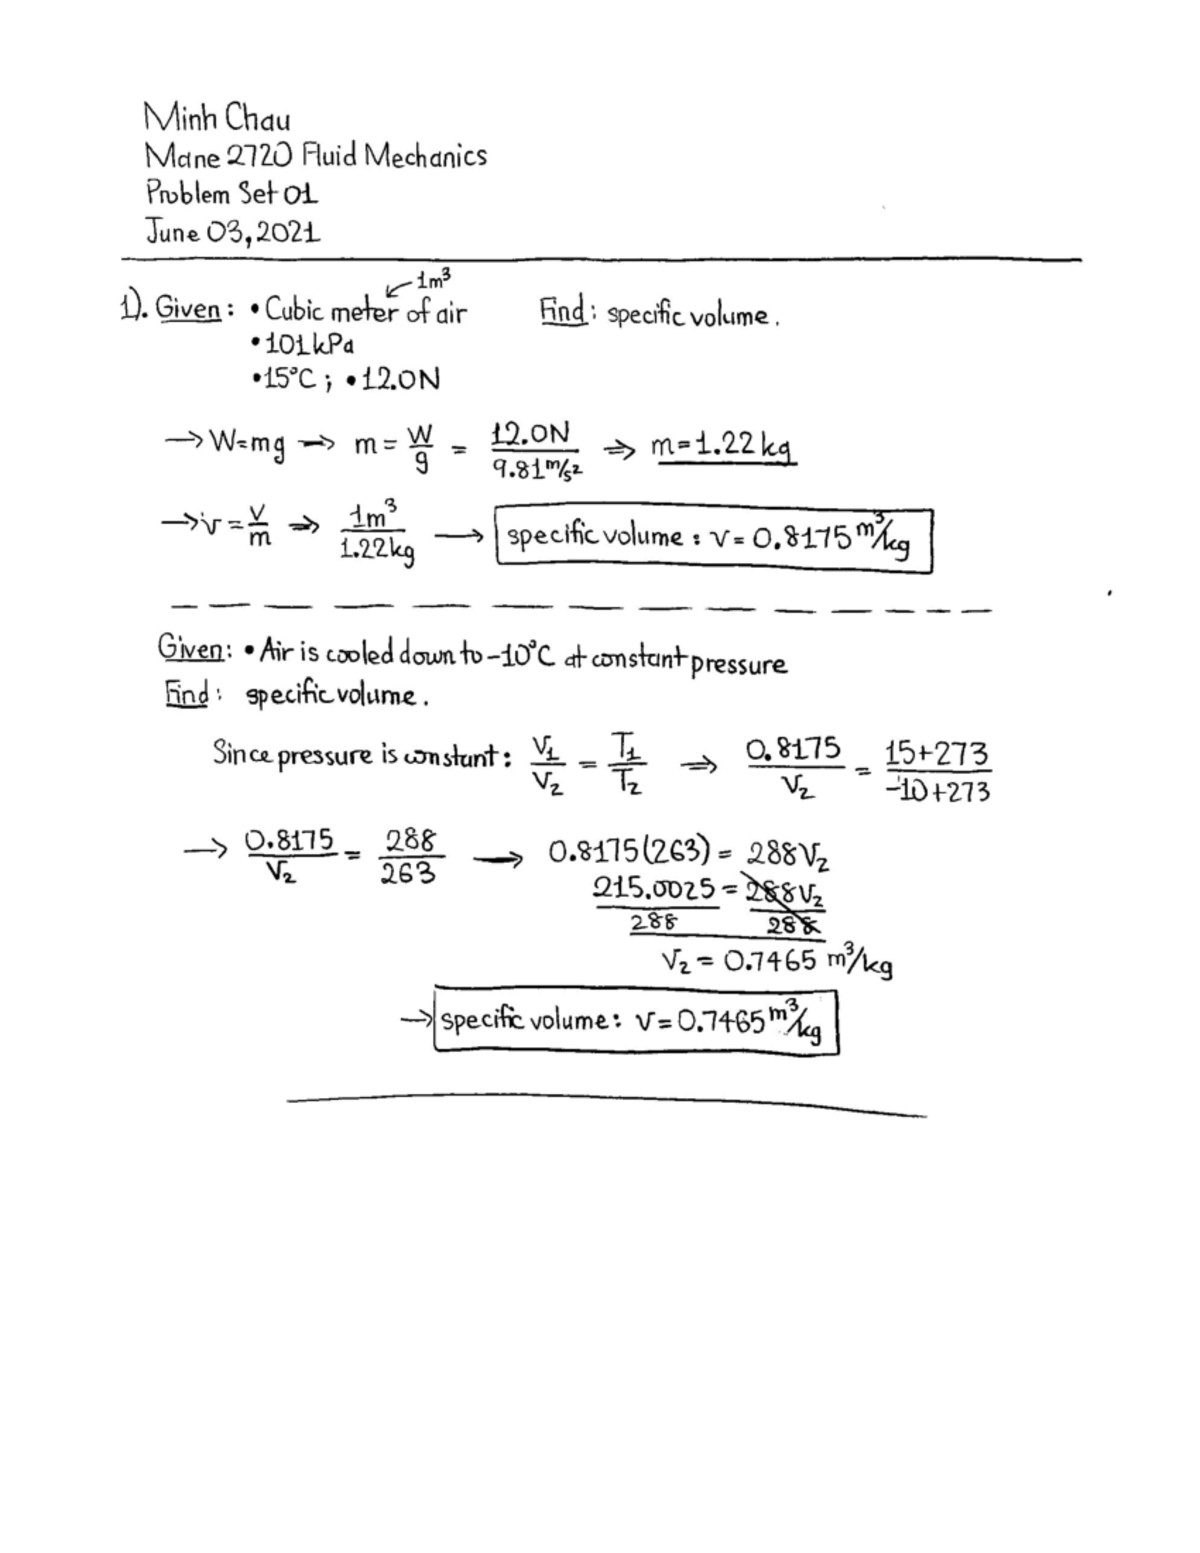 Minh Chau
Mane 2720 Fluid Mechanics
Problem Set 01
June 03, 2021
1m³
1). Given: • Cubic meter of air Find: specific volume.
• 101kPa
• 15°C ; • 12.0N
→ W=mg → m = W/g = 12.0N / 9.81 m/s² ⇒ m=1.22 kg
→ v = V/m ⇒ 1m³ / 1.22kg → specific volume : v = 0.8175 m³/kg
Given: • Air is cooled down to -10°C at constant pressure
Find: specific volume.
Since pressure is constant: V₁/V₂ = T₁/T₂ ⇒ 0.8175/V₂ = 15+273 / -10+273
→ 0.8175/V₂ = 288/263 → 0.8175(263) = 288V₂
215.0025 = 288V₂
288 288
V₂ = 0.7465 m³/kg
→ specific volume: v = 0.7465 m³/kg